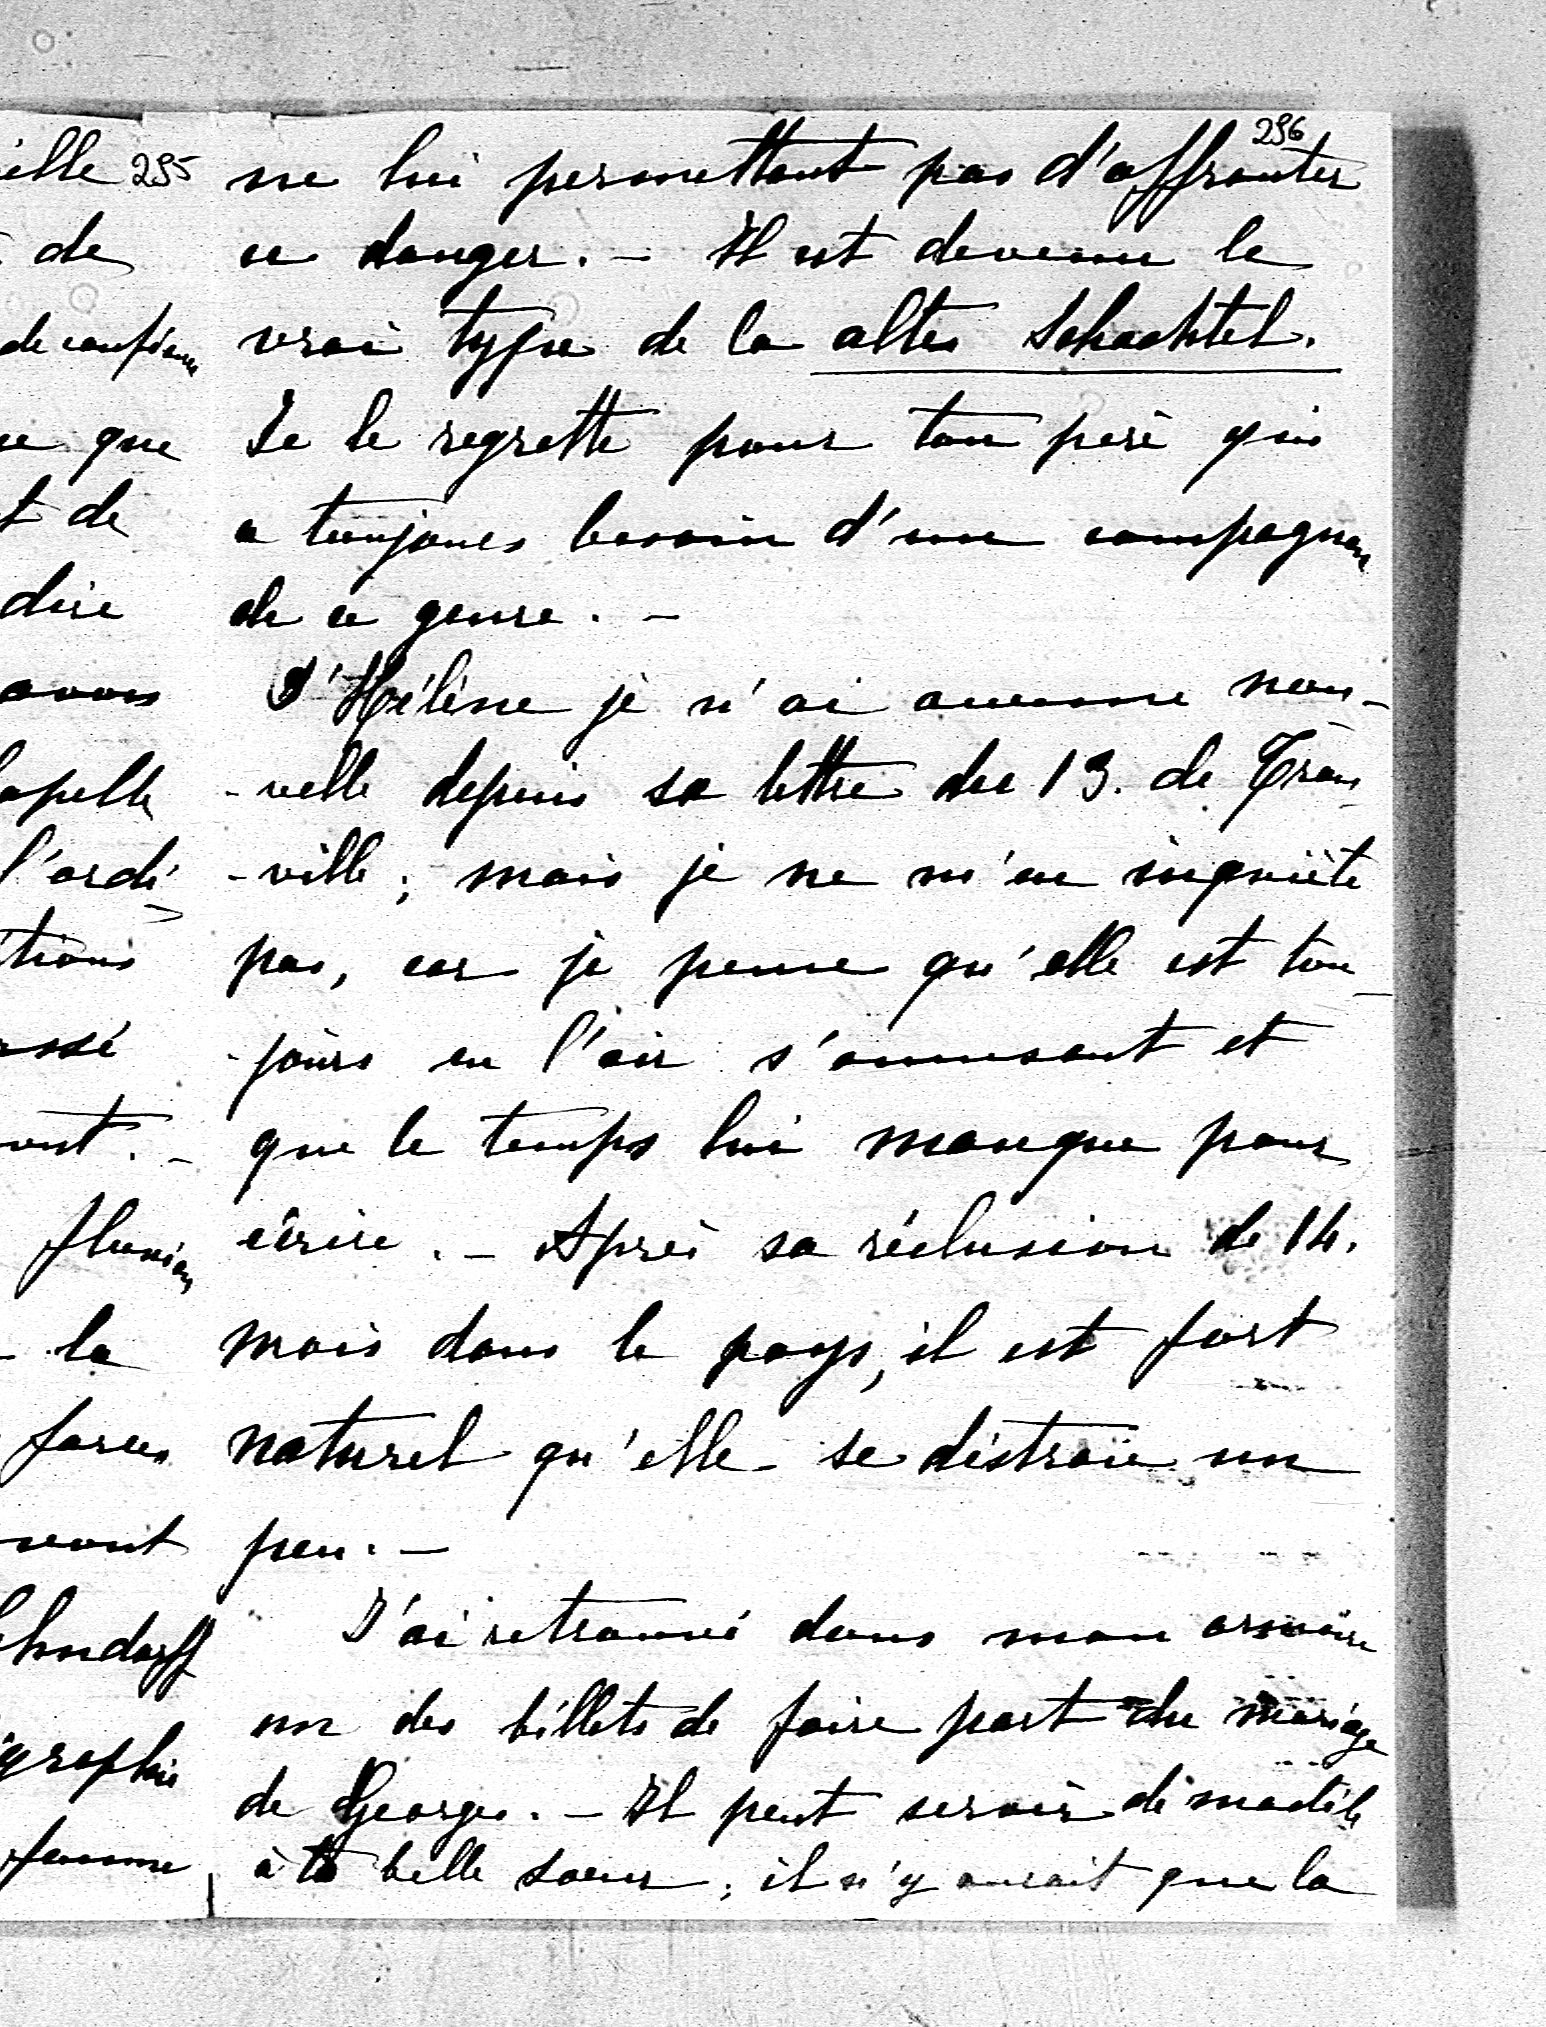 ille 295
de
de confian
ce que
t de
dire
avons
apelle
l'ordi
itions
assé
ont. -
fluvian
- la
forces
vont
ehndorff
igraphie
femme
296
ne lui permettant pas d'affronter
ce danger. - Il est devenu le
vrai type de la altes Schachtel.
Je le regrette pour ton père qui
a toujours besoin d'un compagnon
de ce genre. -
D'Hélène je n'ai aucune nou-
-velle depuis sa lettre du 13. de Trou-
-ville; mais je ne m'en inquiète
pas, car je pense qu'elle est tou-
-jours en l'air s'amusant et
que le temps lui manque pour
écrire. - Après sa réclusion de 14.
mois dans le pays, il est fort
naturel qu'elle se distraie un
peu. -
J'ai retrouvé dans mon armoire
un des billets de faire part du mariage
de Georges. - Il peut servir de modèle
à ta belle soeur; il n'y aurait que la